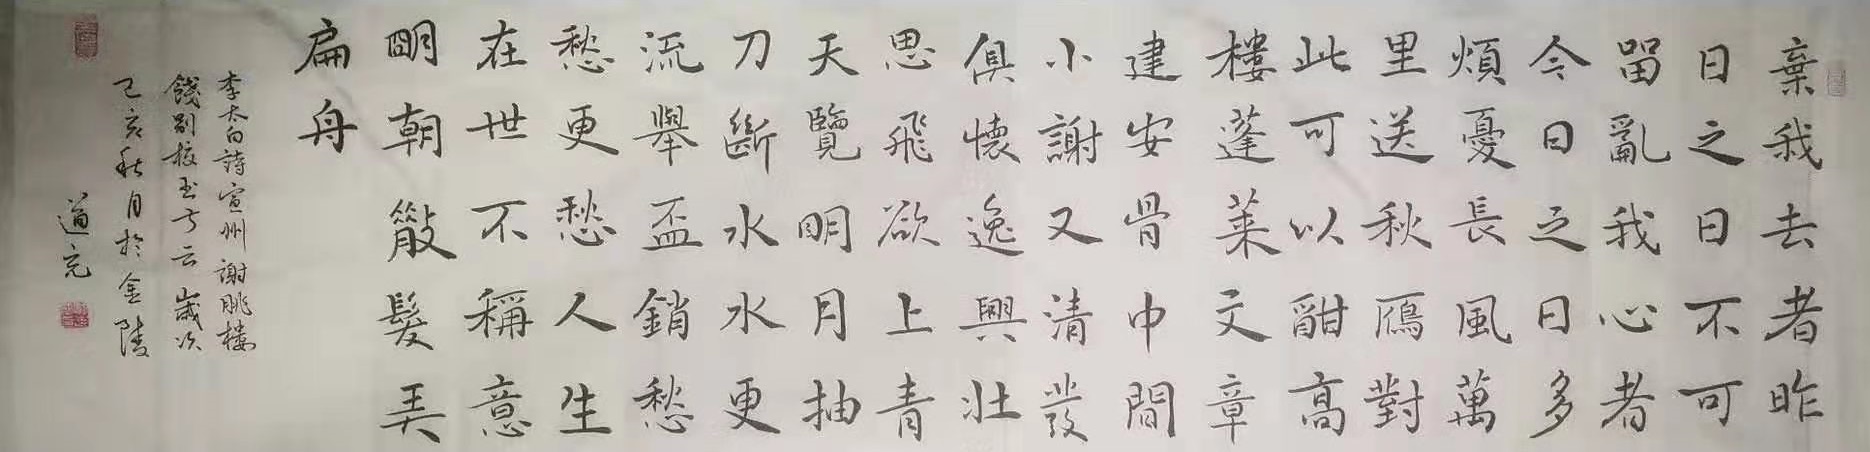 棄我去者昨
日之日不可
留亂我心者
今日之日多
煩憂長風萬
里送秋鴈對
此可以酣高
樓蓬萊文章
建安骨中間
小謝又清發
俱懷逸興壯
思飛欲上青
天覽明月抽
刀斷水水更
流舉盃銷愁
愁更愁人生
在世不稱意
明朝散髮弄
扁舟
李太白詩宣州謝朓樓
餞別校書叔云歲次
己亥秋月於金陵
道元